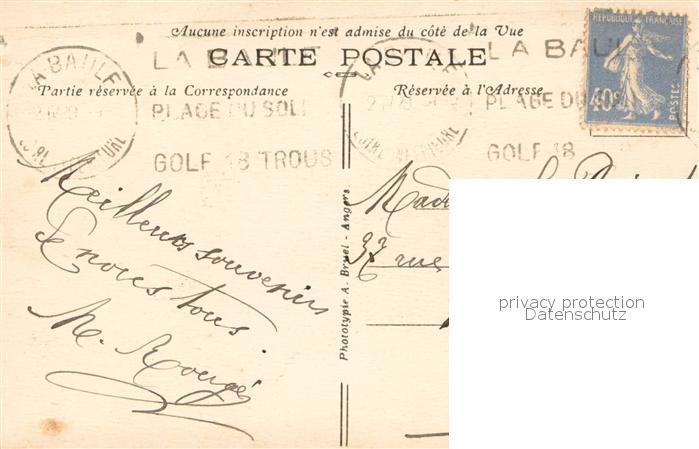 Aucune inscription n'est admise du côté de la Vue
CARTE POSTALE
Partie réservée à la Correspondance
Réservée à l'Adresse
LA BAULE
LOIRE
LA BAULE
PLAGE DU SOL
GOLF 18 TROUS
LA BAU
PLAGE DU
GOLF 18
REPUBLIQUE FRANÇAISE
40c
POSTES
Meilleurs souvenirs
de nous tous
M. Rouges
Phototypie A. Bruel - Angers
Mad
37 rue
privacy protection
Datenschutz